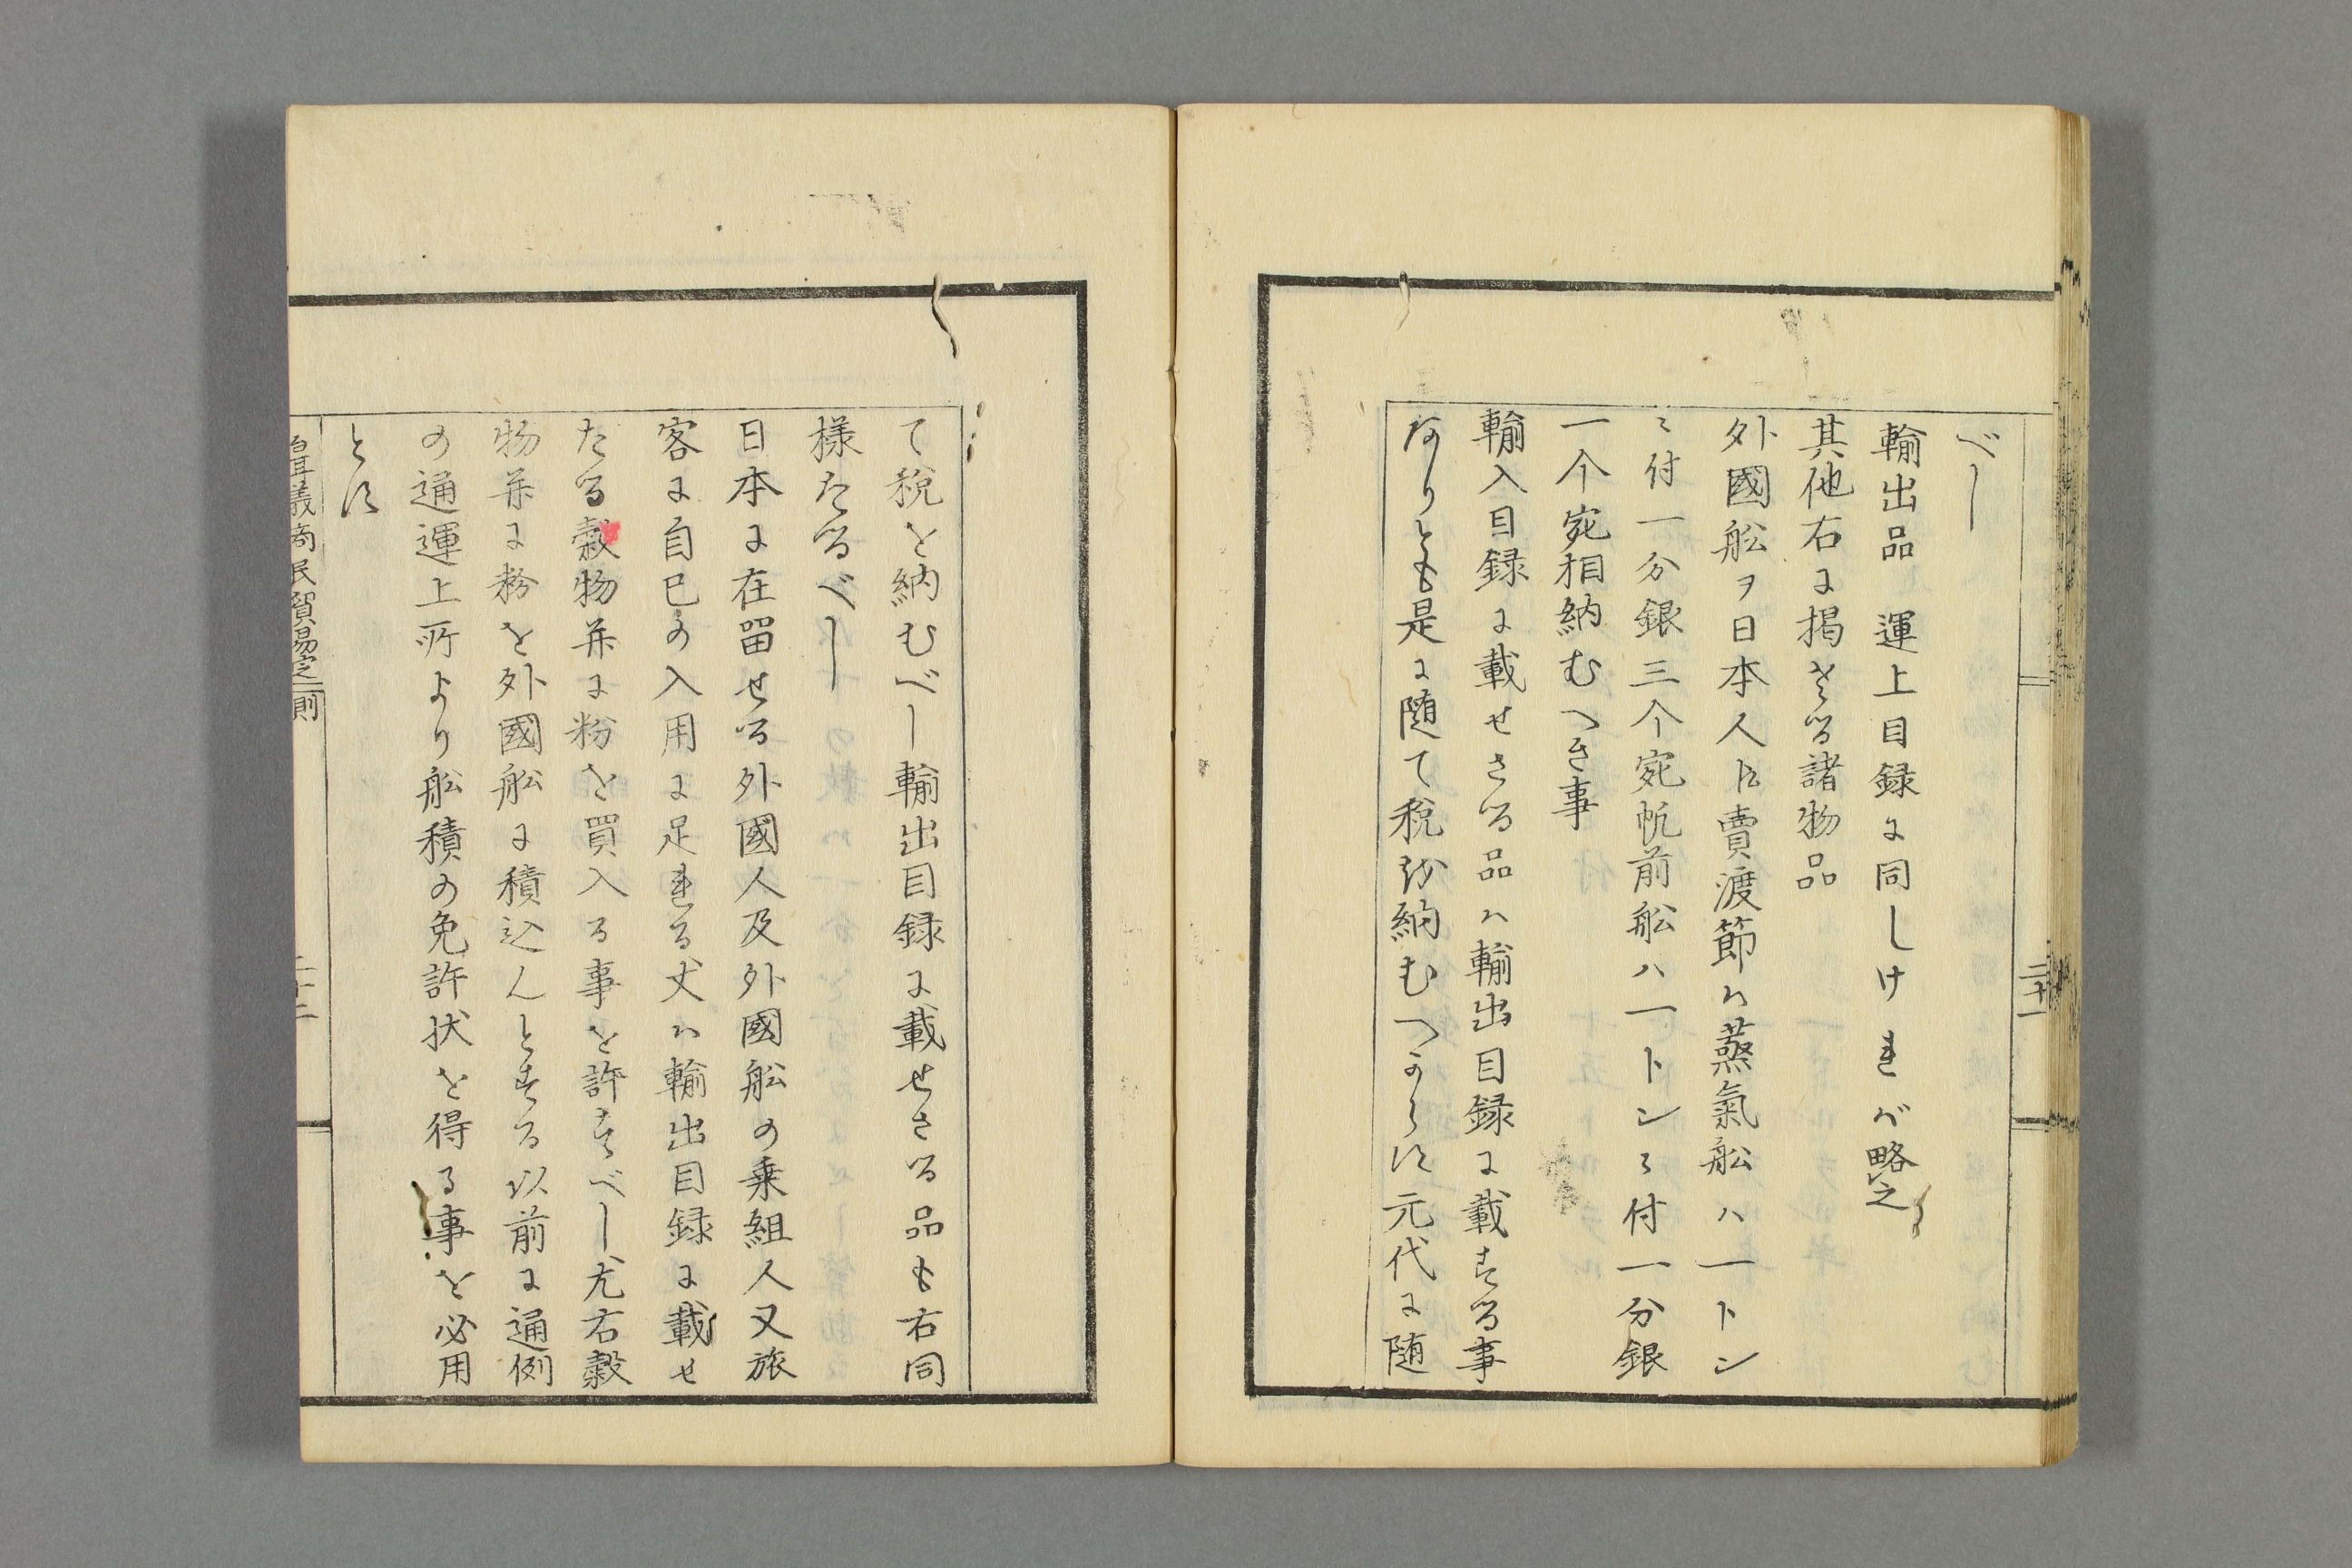 べし
輸出品　運上目録に同しけれバ略之
其他右に掲さる諸物品
外國舩ヲ日本人ﾆ賣渡節ハ蒸氣舩ハ一トン
ﾆ付一分銀三个宛帆前舩ハ一トンﾆ付一分銀
一个宛相納むへき事
輸入目録に載せさる品ハ輸出目録に載する事
ありとも是に随て税を納むへからす元代に随
二十一
て税を納むべし輸出目録に載せさる品も右同
様たるべし
日本に在留せる外國人及外國舩の乗組人又旅
客に自己の入用に足れる丈ハ輸出目録に載せ
たる穀物并に粉を買入る事を許すべし尤右穀
物并に粉を外國舩に積込んとする以前に通例
の通運上所より舩積の免許状を得る事を必用
とす
白耳義商民貿易定則
二十二